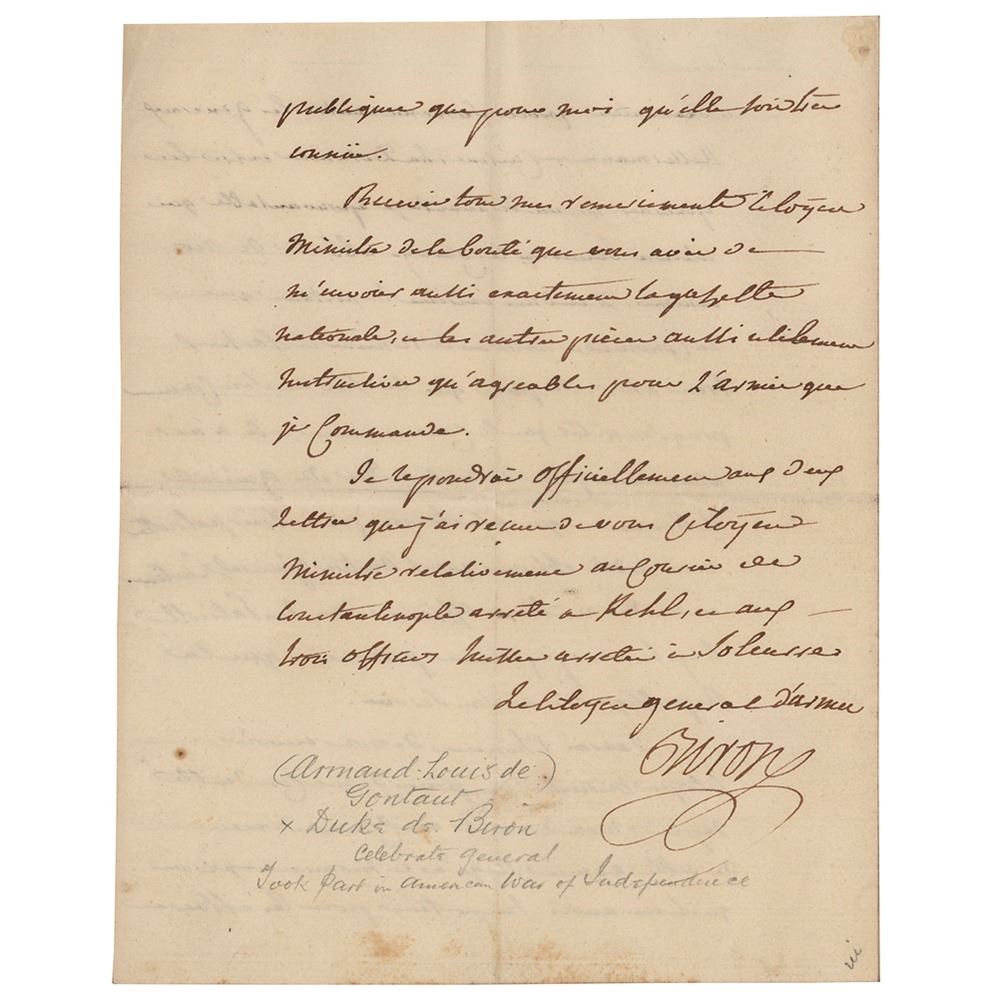 publique que pour moi qu'elle soit très
connüe.
Recevez tous mes remerciements Citoyen
Ministre de la bonté que vous avez de
m'envoier aussi exactement la gazette
nationale, et les autres pièces aussi utilement
Instructives qu'agréables pour L'armée que
je Commande.
Je repondrai officiellement aux deux
lettres que j'ai recues de vous Citoyen
Ministre relativement au Courier de
Constantinople arreté a Kehl, et aux
trois officiers arretés à Soleurre
Le citoyen general d'armée
Biron
(Armand-Louis de)
Gontaut
x Duke de Biron
Celebrate general
Took Part in American War of Independence